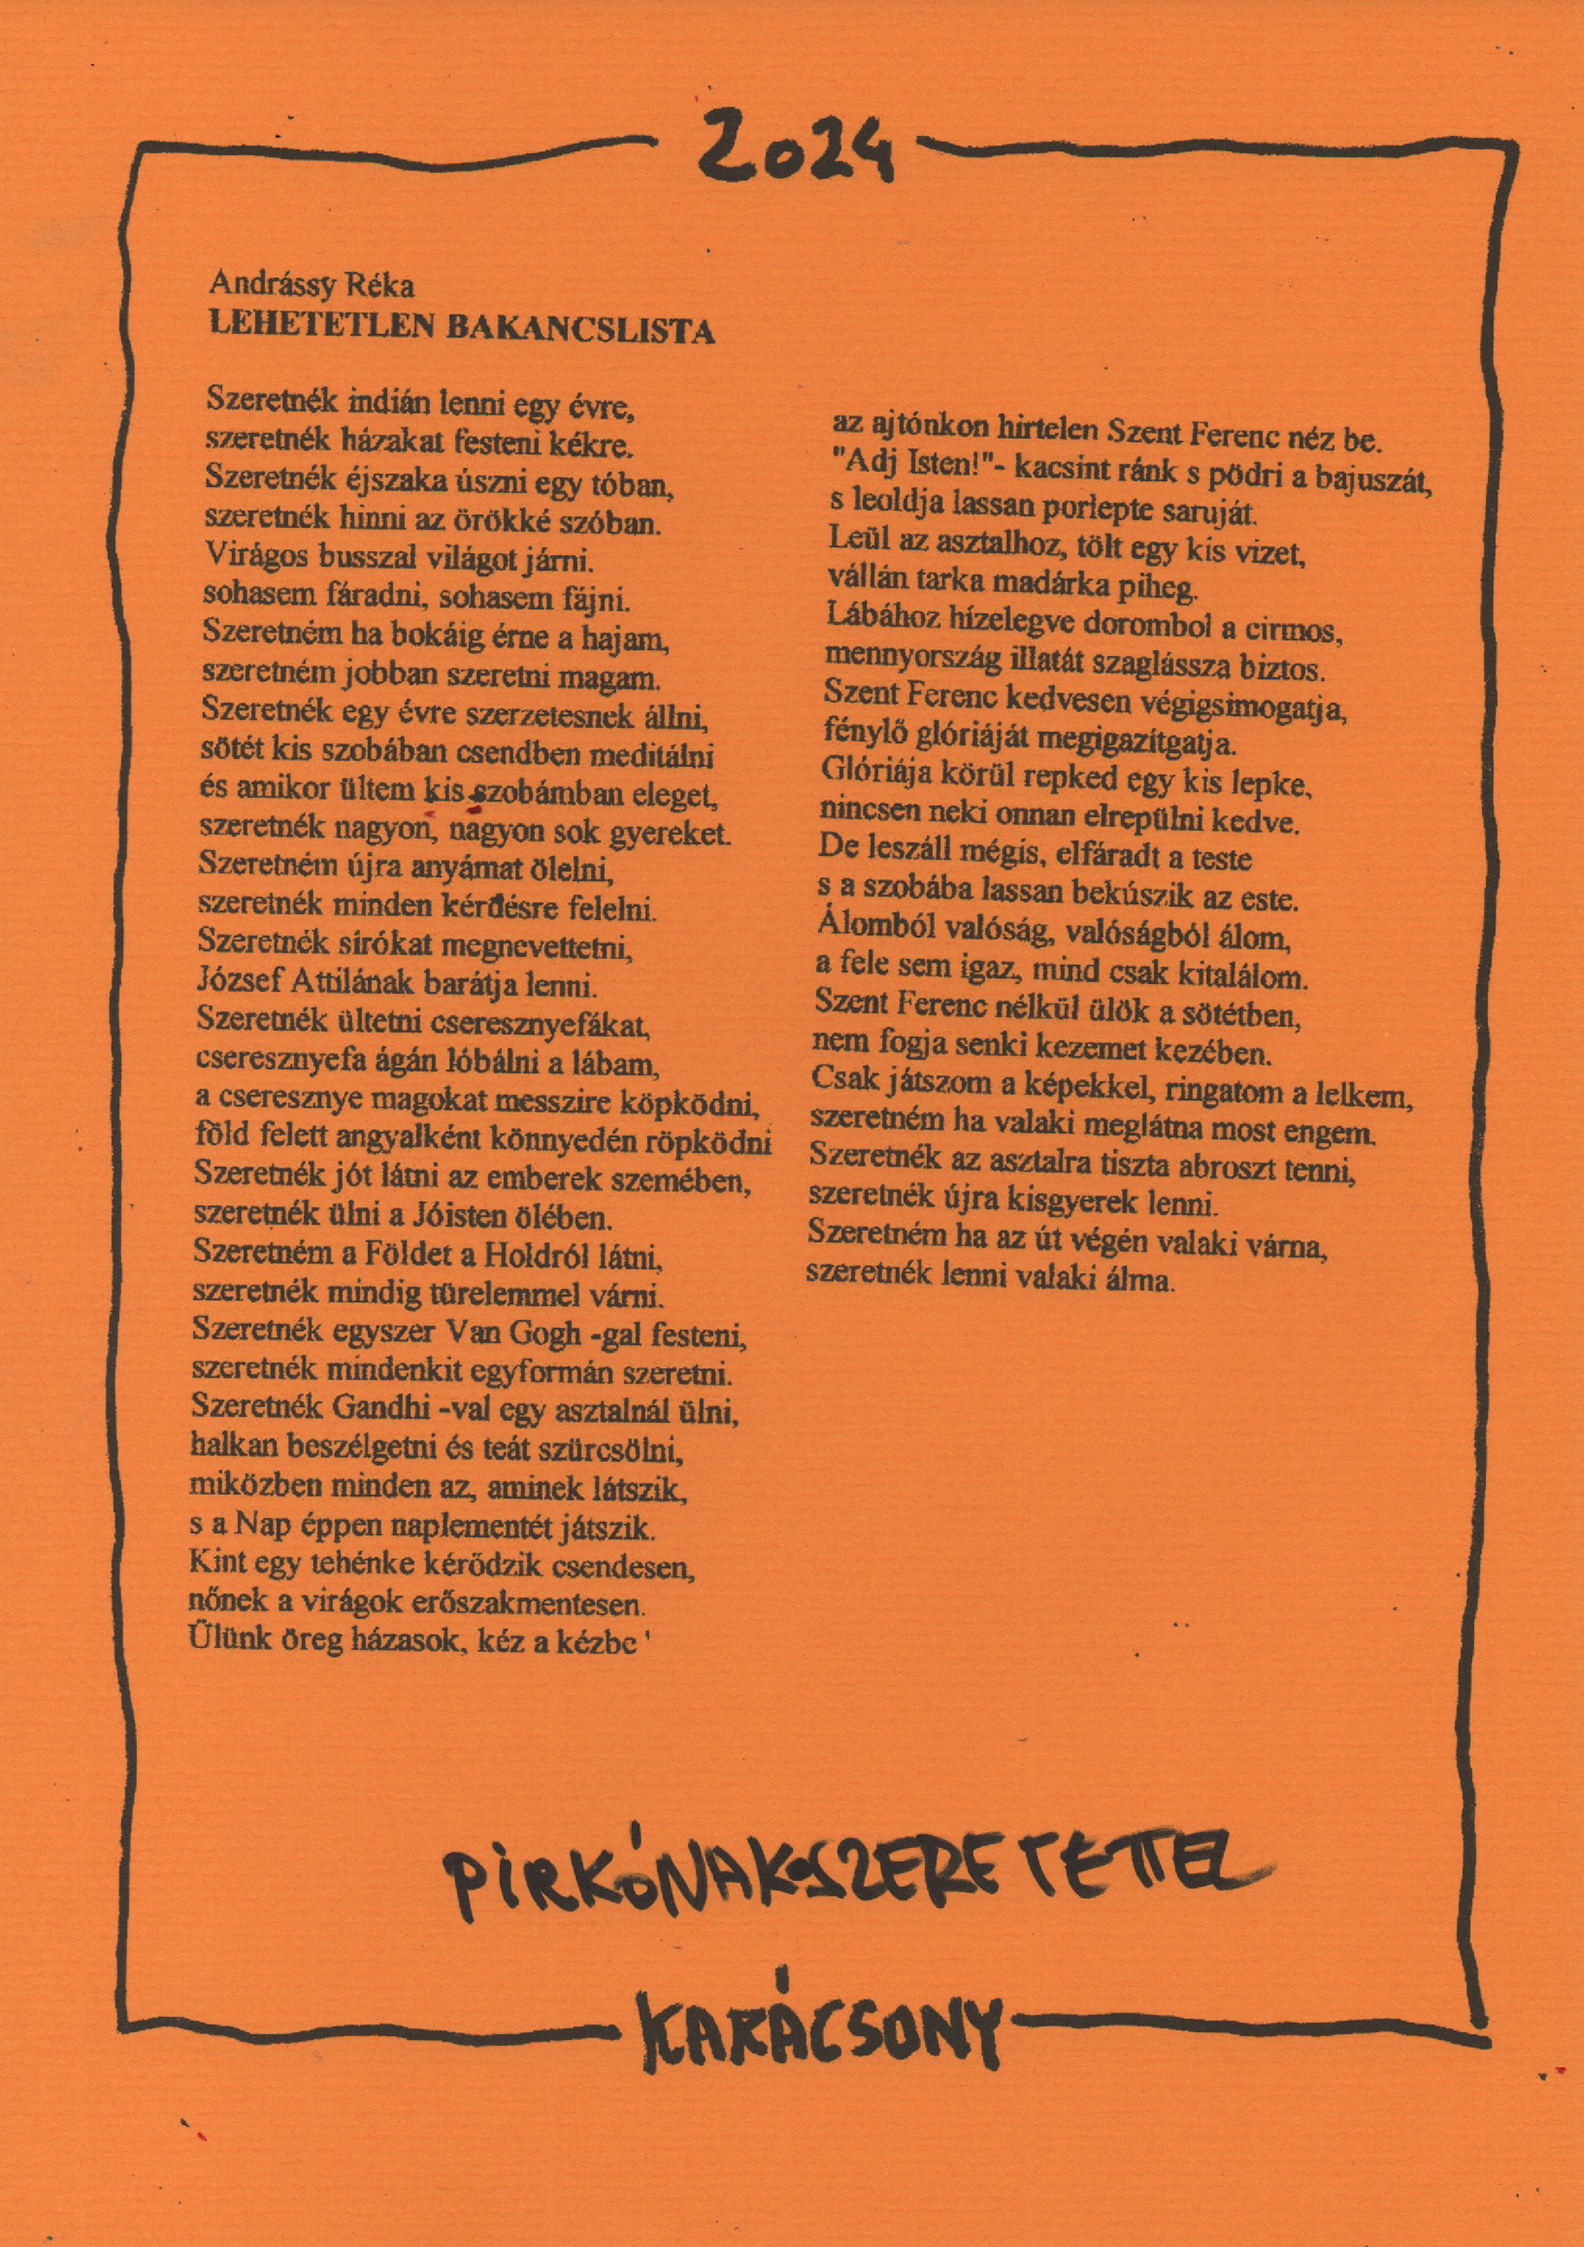 2024
Andrássy Réka
LEHETETLEN BAKANCSLISTA
Szeretnék indián lenni egy évre,
szeretnék házakat festeni kékre.
Szeretnék éjszaka úszni egy tóban,
szeretnék hinni az örökké szóban.
Virágos busszal világot járni.
sohasem fáradni, sohasem fájni.
Szeretném ha bokáig érne a hajam,
szeretném jobban szeretni magam.
Szeretnék egy évre szerzetesnek állni,
sötét kis szobában csendben meditálni
és amikor ültem kis szobámban eleget,
szeretnék nagyon, nagyon sok gyereket.
Szeretném újra anyámat ölelni,
szeretnék minden kérdésre felelni.
Szeretnék sírókat megnevettetni,
József Attilának barátja lenni.
Szeretnék ültetni cseresznyefákat,
cseresznyefa ágán lóbálni a lábam,
a cseresznye magokat messzire köpködni,
föld felett angyalként könnyedén röpködni
Szeretnék jót látni az emberek szemében,
szeretnék ülni a Jóisten ölében.
Szeretném a Földet a Holdról látni,
szeretnék mindig türelemmel várni.
Szeretnék egyszer Van Gogh -gal festeni,
szeretnék mindenkit egyformán szeretni.
Szeretnék Gandhi -val egy asztalnál ülni,
halkan beszélgetni és teát szürcsölni,
miközben minden az, aminek látszik,
s a Nap éppen naplementét játszik.
Kint egy tehénke kérődzik csendesen,
nőnek a virágok erőszakmentesen.
Ülünk öreg házasok, kéz a kézbe '
az ajtónkon hirtelen Szent Ferenc néz be.
"Adj Isten!"- kacsint ránk s pödri a bajuszát,
s leoldja lassan porlepte saruját.
Leül az asztalhoz, tölt egy kis vizet,
vállán tarka madárka piheg.
Lábához hízelegve dorombol a cirmos,
mennyország illatát szaglássza biztos.
Szent Ferenc kedvesen végigsimogatja,
fénylő glóriáját megigazítgatja.
Glóriája körül repked egy kis lepke,
nincsen neki onnan elrepülni kedve.
De leszáll mégis, elfáradt a teste
s a szobába lassan bekúszik az este.
Álomból valóság, valóságból álom,
a fele sem igaz, mind csak kitalálom.
Szent Ferenc nélkül ülök a sötétben,
nem fogja senki kezemet kezében.
Csak játszom a képekkel, ringatom a lelkem,
szeretném ha valaki meglátna most engem.
Szeretnék az asztalra tiszta abroszt tenni,
szeretnék újra kisgyerek lenni.
Szeretném ha az út végén valaki várna,
szeretnék lenni valaki álma.
PIRKÓNAK SZERETETTEL
KARÁCSONY